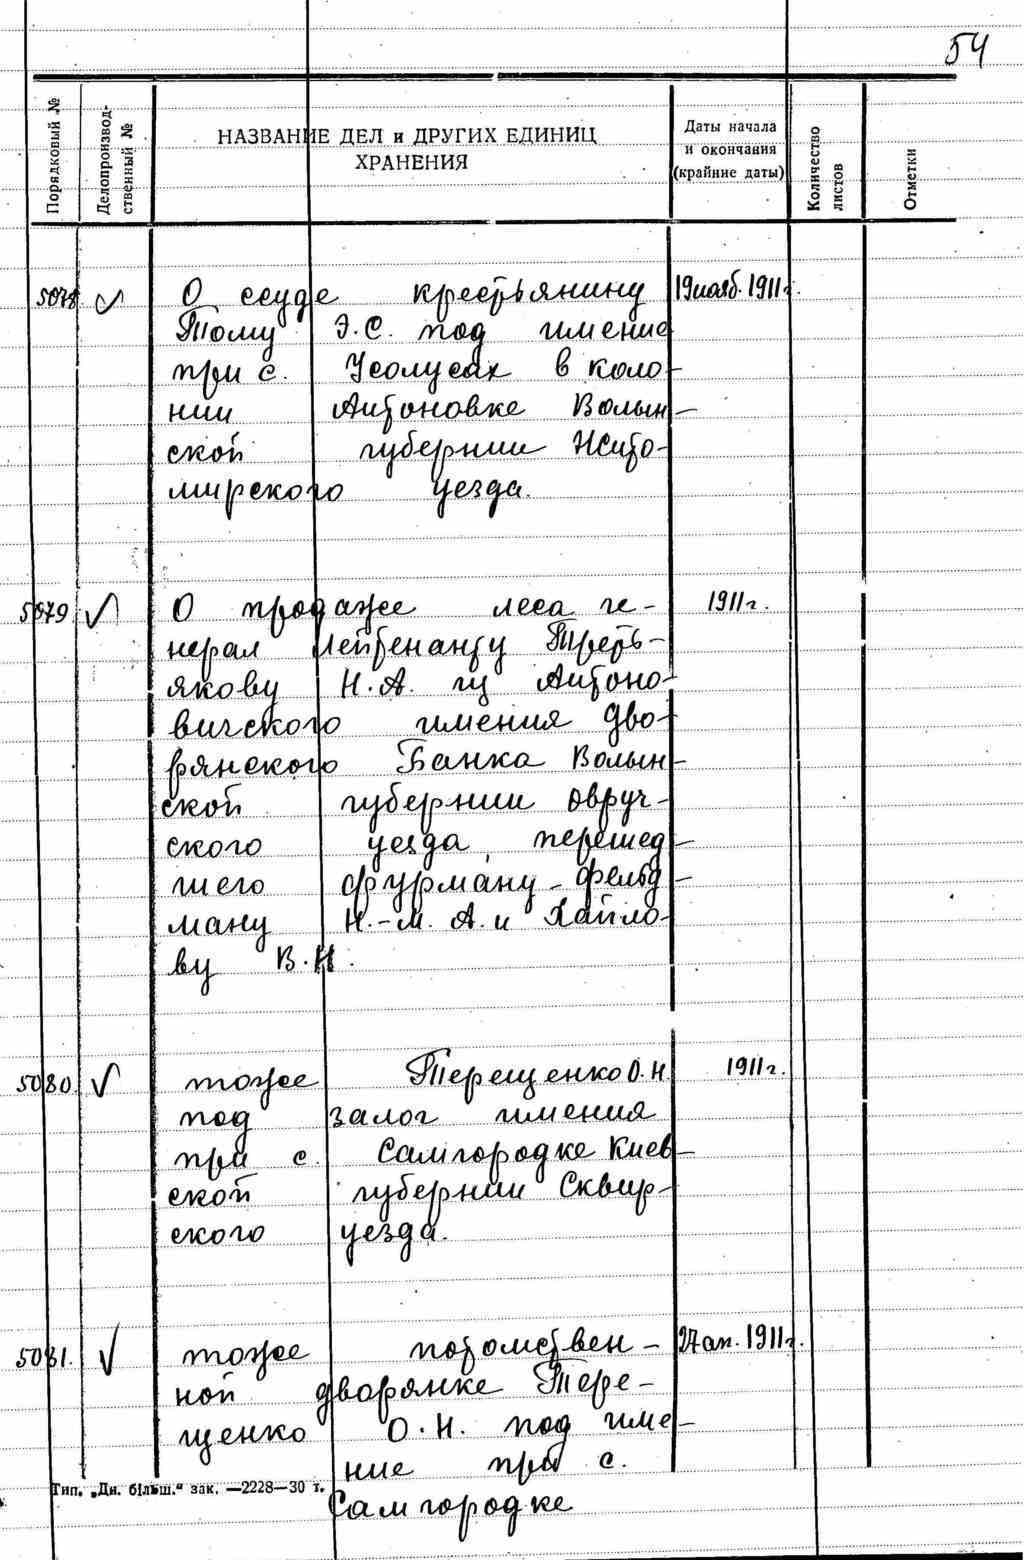 54
Порядковый №
Делопроизвод-
ственный №
НАЗВАНИЕ ДЕЛ и ДРУГИХ ЕДИНИЦ
ХРАНЕНИЯ
Даты начала
и окончания
(крайние даты)
Количество
листов
Отметки
5078 О ссуде крестьянину 19 нояб. 1911 г.
Тому Э.С. под имение
при с. Усолусах в коло-
нии Антоновке Волын-
ской губернии Жито-
мирского уезда.
5079. О продаже леса ге- 1911 г.
нерал Лейтенанту Треть-
якову Н.А. из Антоно-
вичского имения дво-
рянского Банка Волын-
ской губернии Овруч-
ского уезда, перешед-
шего Фурману-Фельд-
ману Н.-М. А. и Хайло-
ву В.Н.
5080. тоже Терещенко О.Н. 1911 г.
под залог имения
при с. Самгородке Киев-
ской губернии Сквир-
ского уезда.
5081. тоже потомствен- 27 ап. 1911 г.
ной дворянке Тере-
щенко О.Н. под име-
ние при с.
Самгородке
Тип. „Дн. більш.“ зак. —2228—30 т.